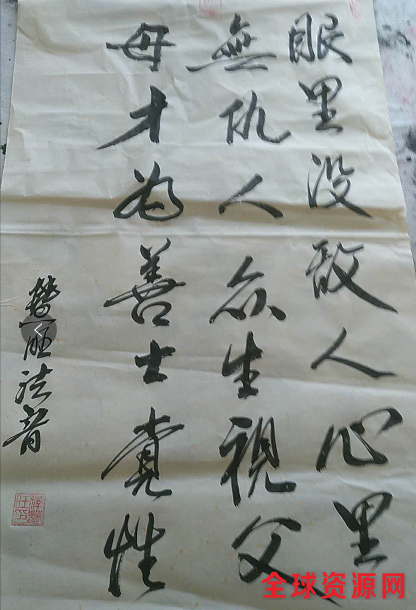 眼里没敌人心里
無仇人众生視父
母才为善士竟性
法音
全球资源网